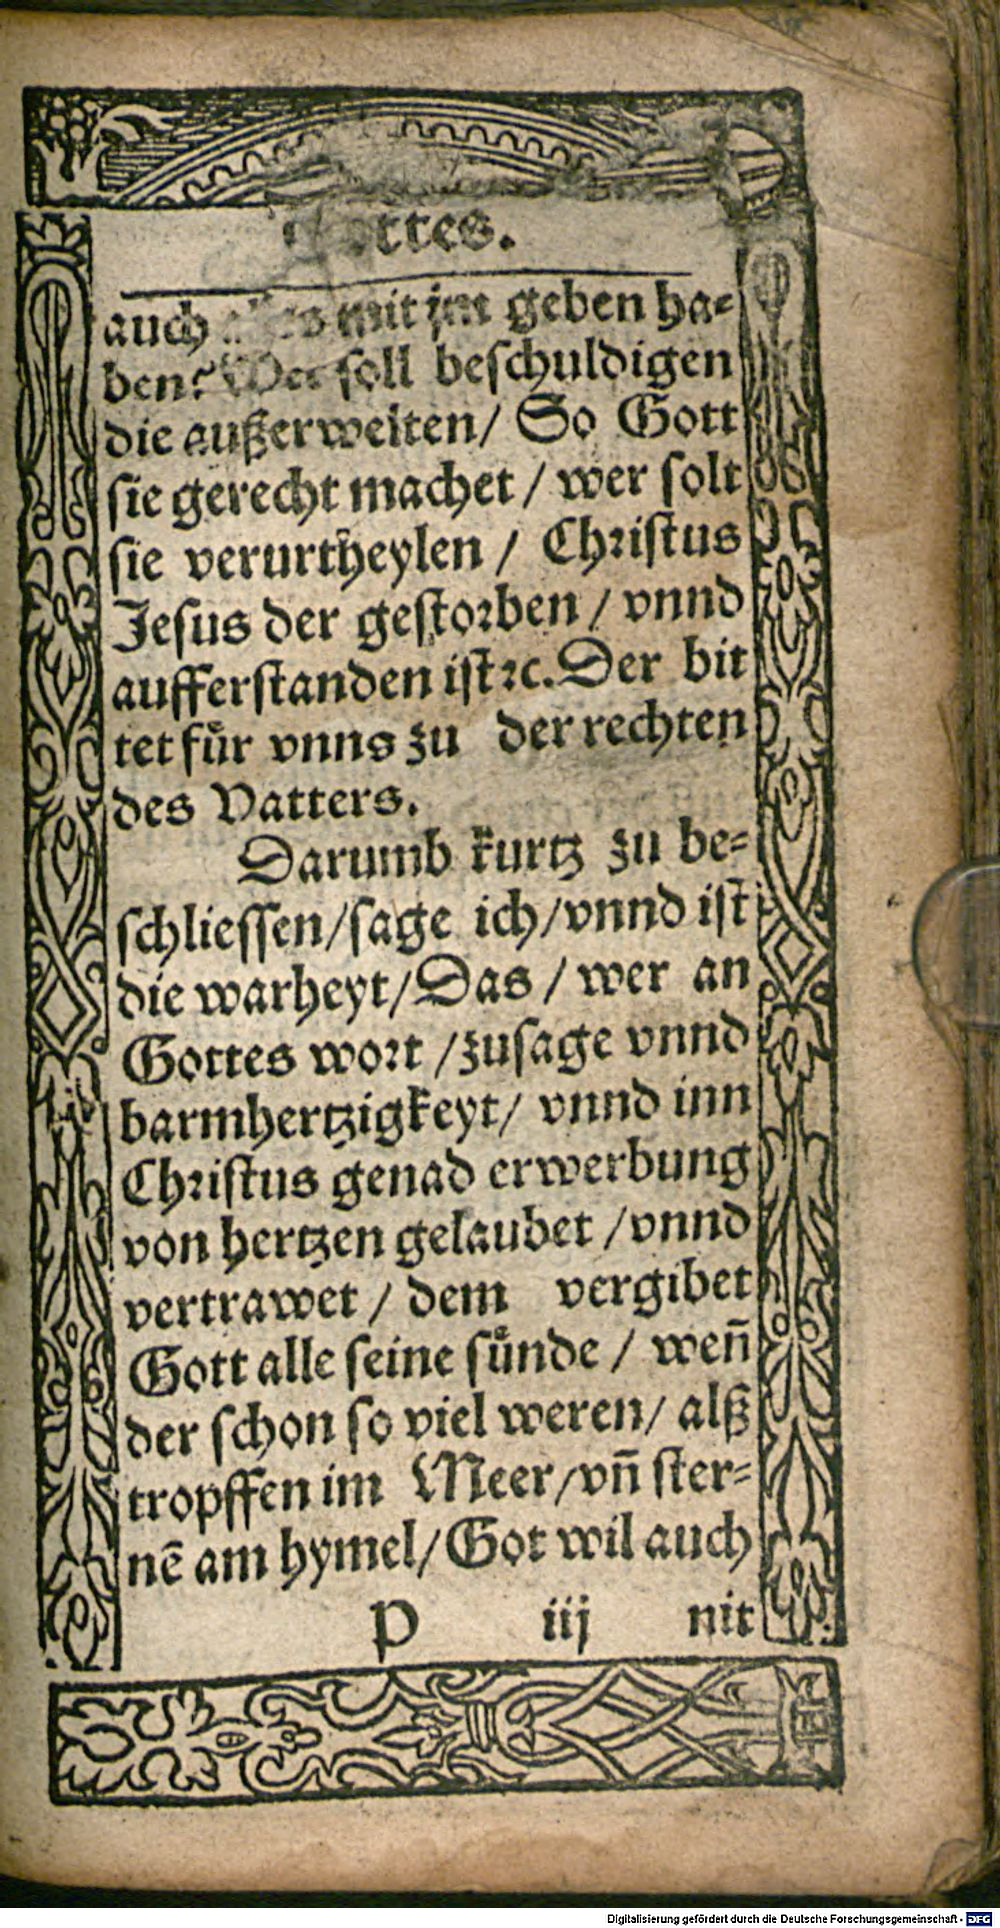 Gottes.
auch alles mit jm geben ha-
ben? Wer soll beschuldigen
die außerwelten/ So Gott
sie gerecht machet / wer solt
sie verurtheylen / Christus
Jesus der gestorben / vnnd
aufferstanden ist ꝛc. Der bit
tet fuͤr vnns zu der rechten
des Vatters.
Darumb kurtz zu be-
schliessen/ sage ich/ vnnd ist
die warheyt/ Das / wer an
Gottes wort / zusage vnnd
barmhertzigkeyt/ vnnd inn
Christus genad erwerbung
von hertzen gelaubet / vnnd
vertrawet / dem vergibet
Gott alle seine suͤnde / weñ
der schon so viel weren/ alß
tropffen im Meer/ vñ ster-
nē am hymel/ Got wil auch
P iij nit
Digitalisierung gefördert durch die Deutsche Forschungsgemeinschaft - DFG